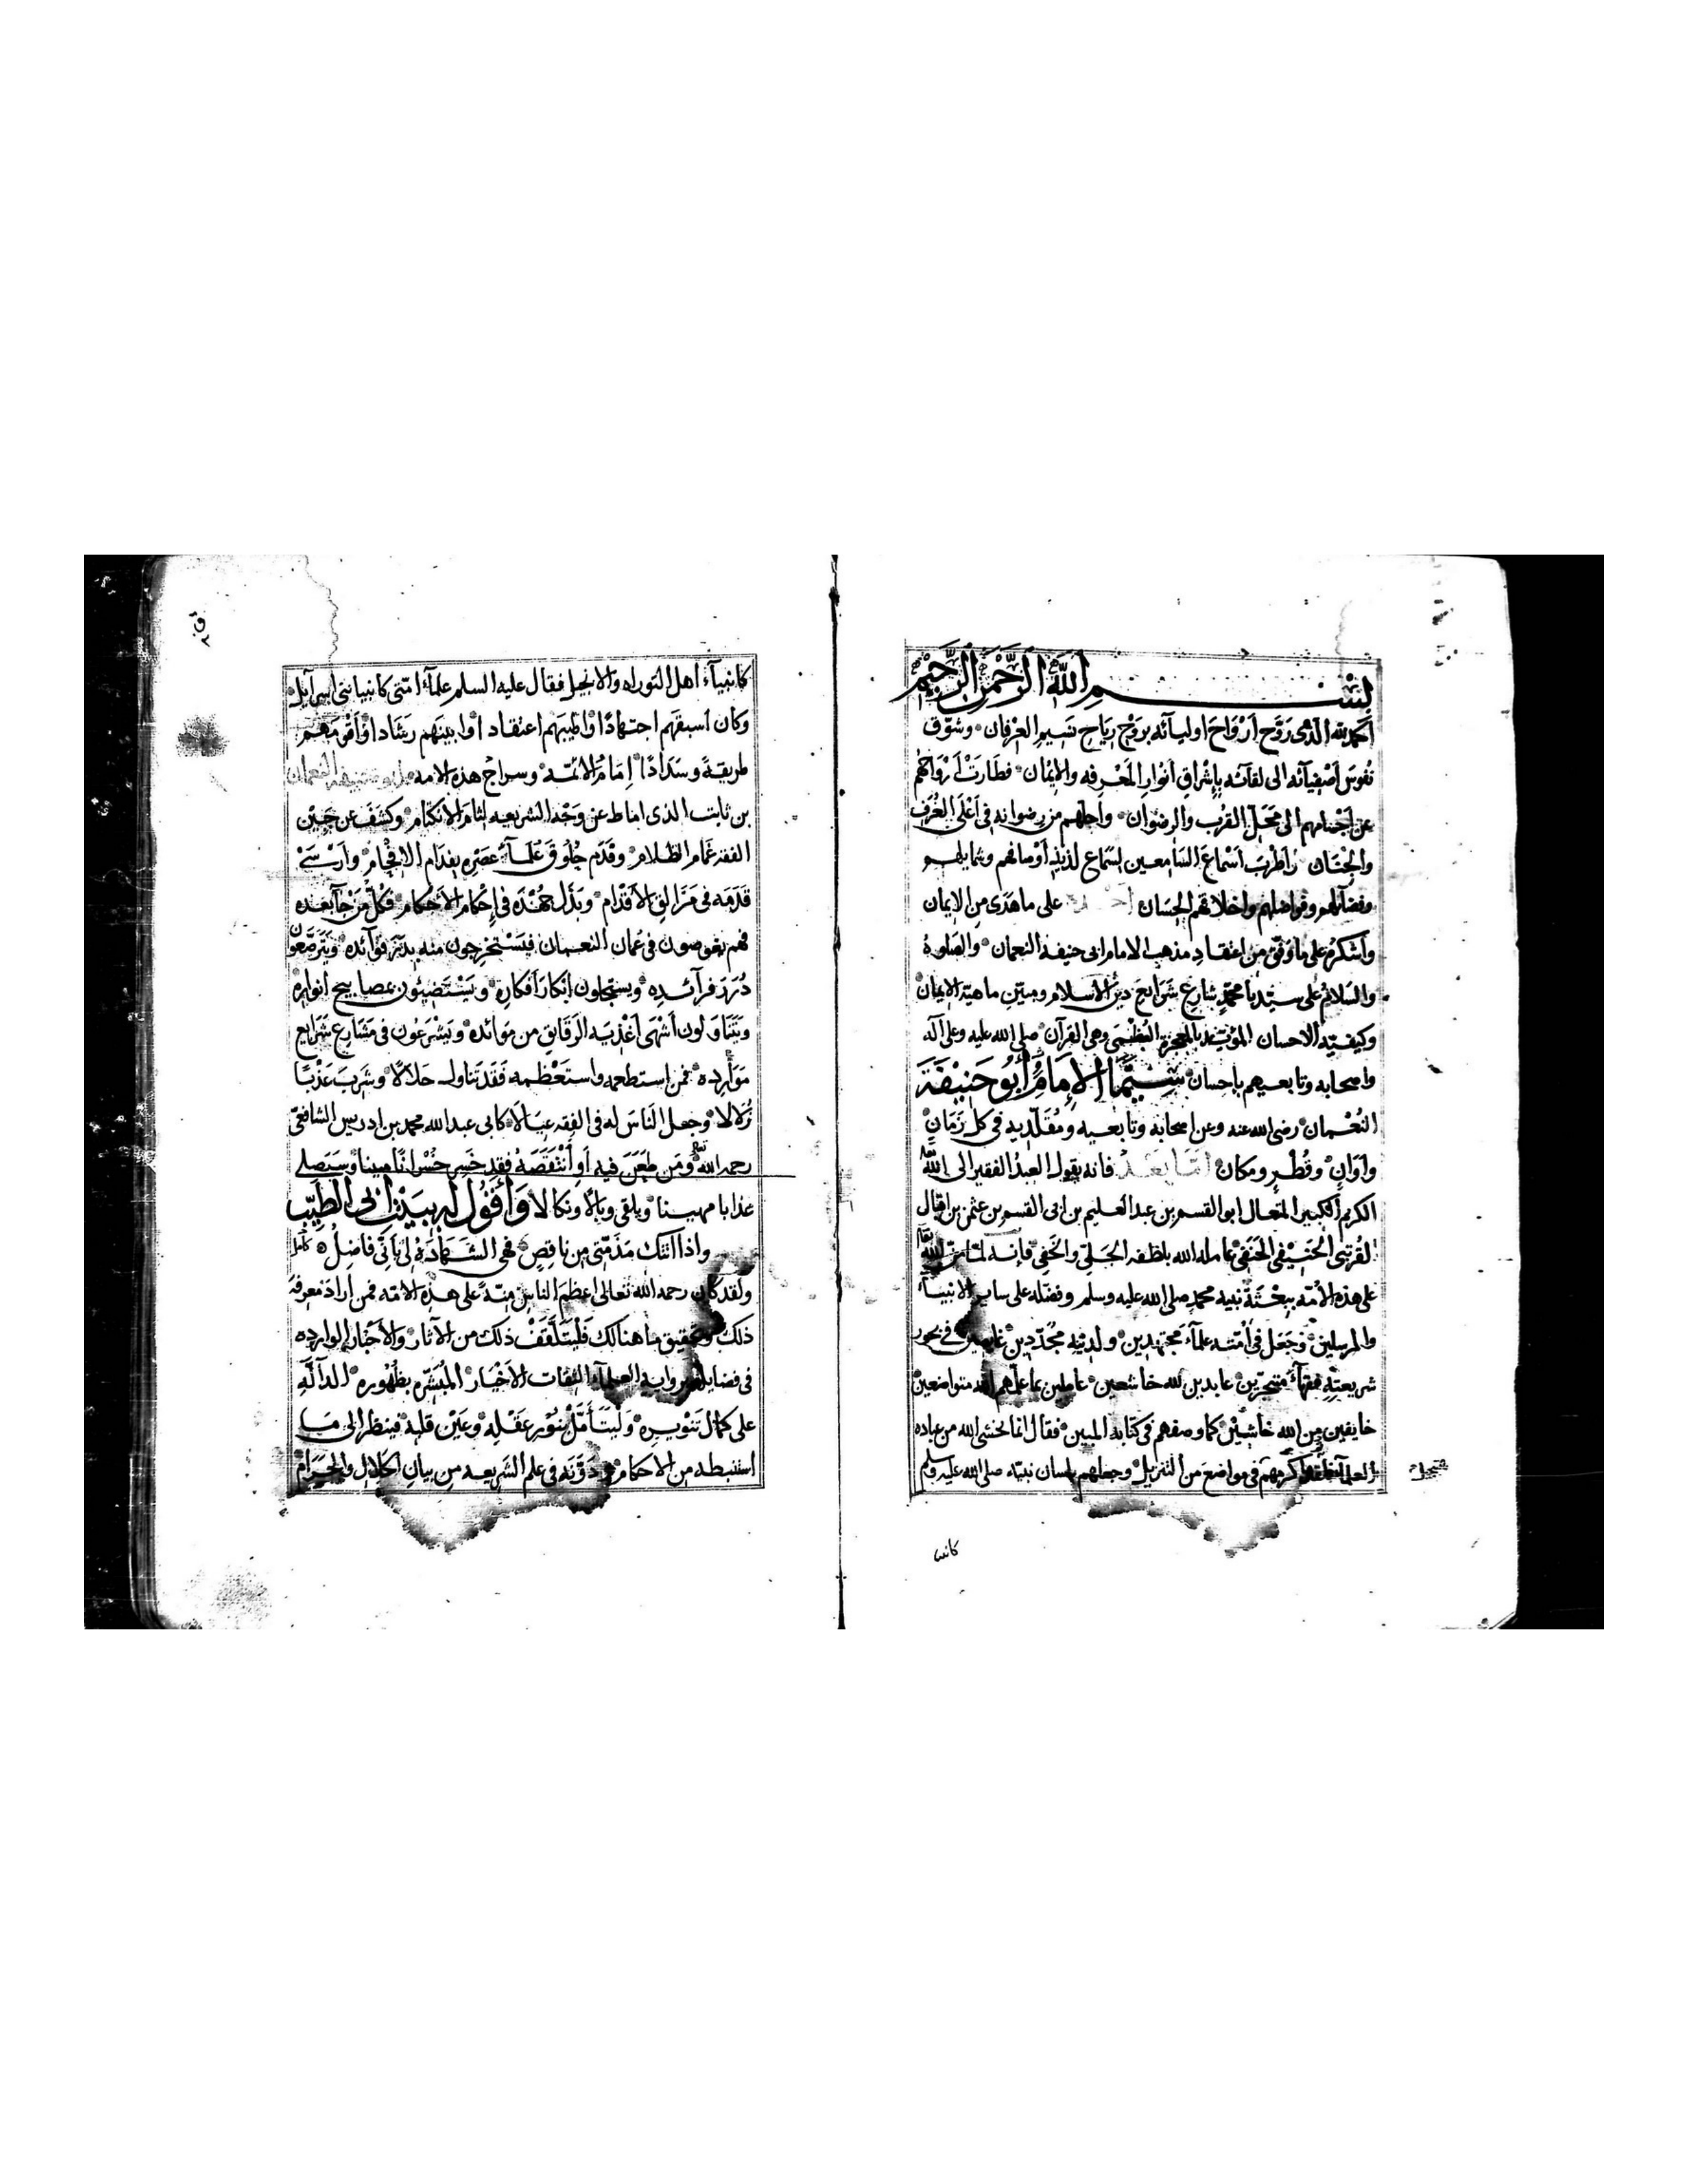 بسم الله الرحمن الرحيم
الحمد لله الذى رَوَّح أرْوَاحَ اوليائه بروح رياح نسيم العرفان وشوّق
نفوس أصفيائه الى لقائه بإشراق أنوار المَعْرفه والإيمان فطارت أرواحهم
عن اجسامهم الى محَلّ القرب والرضوان وأحلهم من رضوانه فى أعْلَى الغُرَف
والجْنَان وأطرَبَ أسْمَاعَ السَامعين لسَماع لذيذ أوصافهم وشمايلهم
وفضائلهم وفواضلهم واخلاقهم الحِسَان على ما هَدَى من الإيمان
واشكرُه على ما وَفّق من اعتقادِ مذهب الامام ابى حنيفه النعمان والصَلوةُ
والسَلامُ على سيّدنا محمّدٍ شارع شرَايع دين الأسلام ومبيّن ماهيّة الايمان
وكيفيّه الاحسان المؤيّد بالمعجزة العُظْمَى وهى القرآن صلى الله عليه وعلى آله
واصحابه وتابعيهم باحسان سِيَّمَا الإمَامُ أبُو حَنيفَةَ
النُعْمان رضى الله عنه وعن اصحابه وتابعيه ومُقَلّديه فى كل زَمَانٍ
وأوَانٍ وقُطْرٍ ومكان أمَّا بَعْدُ فانه يقول العبدُ الفقير الى الله
الكريم الكبير المتعال ابو القسم بن عبد العليم بن ابى القسم بن عثمن بن اقبال
القرتبى الحنيفى الحَنَفى عامله الله بلطفه الجَلى والخَفى فإنه لمّا منّ الله
على هذه الأمّه ببعْثَة نبيه محمدٍ صلى الله عليه وسلم وفضّله على ساير الانبياء
والمرسلين وَجَعَل فى أمّته علمآءَ مجتهدين ولدينه مُجَدّدين فى بحور
شريعتِه فقهآءَ متبحّرين عابدين لله خاشعين عاملين بما علمهم الله متواضعين
خايفين من الله خاشِيْنَ كما وصفهم فى كتابه المبين فقال انما يخشى الله من عباده
العلمآء فى مواضعَ من التنزيل وجعلهم بلسان نبيّه صلى الله عليه وسلم
كانبيا
كانبيآء أهل التوراه والانجيل فقال عليه السلم علمآءُ امتى كانبيا بنى اسرآيل
وكان أسبقَهم اجتهادًا وأطيبَهم اعتقادا وأبينَهم رشَادا وأقومَهم
طريقةً وسَدادًا إمَامُ الائمّه وسراجُ هذه الامه ابو حنيفه النعمان
بن ثابت الذى اماط عن وَجْه الشريعه لثام الانكتام وكشف عن جَبين
الفقه غمام الظلام وقدّم خُلوقَ عُلَمآءِ عصْرِه بفدام الافحام وأرسَخ
قدَمَه فى مَزَالق الأقدام وبَذَل جُهْدَه فى إحْكام الأحْكام فكلّ من جآ بَعْده
فهم يغوصون فى عُمان النعمان فيَسْتخرجون منه بدائع فوآئده ويَترصّعون
دُرَرَ فرآئده ويستجلون أبكارَ أفكاره ويَسْتضيئون بمصابيح انواره
ويَتَنَاوَلون أشهَى أغْذيَه الرقايق من مَوائده ويَشْرَعُون فى مَشَارع شرَايع
مَوَارِده فمن استطعمه واستَعْظمه فَقَد تَناول حَلالًا وشرِبَ عَذْبًا
زُلالا وجعل الناسَ له فى الفقه عيَالا كابى عبد الله محمد بن ادريس الشافعى
رحمه الله ومَن طَعَن فيه أو انْتَقَصَهُ فقد خَسِر خُسْرانًا مبينا وسَيَصلى
عذابا مهينا ويلقى وبالًا ونكالا وَأقُولُ له بيت ابى الطَيّب
واذا اتتك مَذمّتى من ناقِصٍ فهى الشَهادَةُ لى بأنّى فاضِلُ كامل
ولقد كان رحمه الله تعالى اعظمَ الناس مِنّةً على هذه الامّه فمن أرادَ معرفه
ذلك وتحقيق ما هنالك فليَتَلَقّفْ ذلك من الآثار والأخبار الوارده
فى فضايله برواية العلمآءِ الثقات الأخيَار المُبَشّره بظهُوره الدالّه
على كمَال تَنْويره وَليَتأمّلْ بنُور عَقْله وعَيْن قلبه فينظر الى مَا
استنبطه من الاحكام ودَوّنَه فى علم الشريعه من بيان الحلال والحَرام